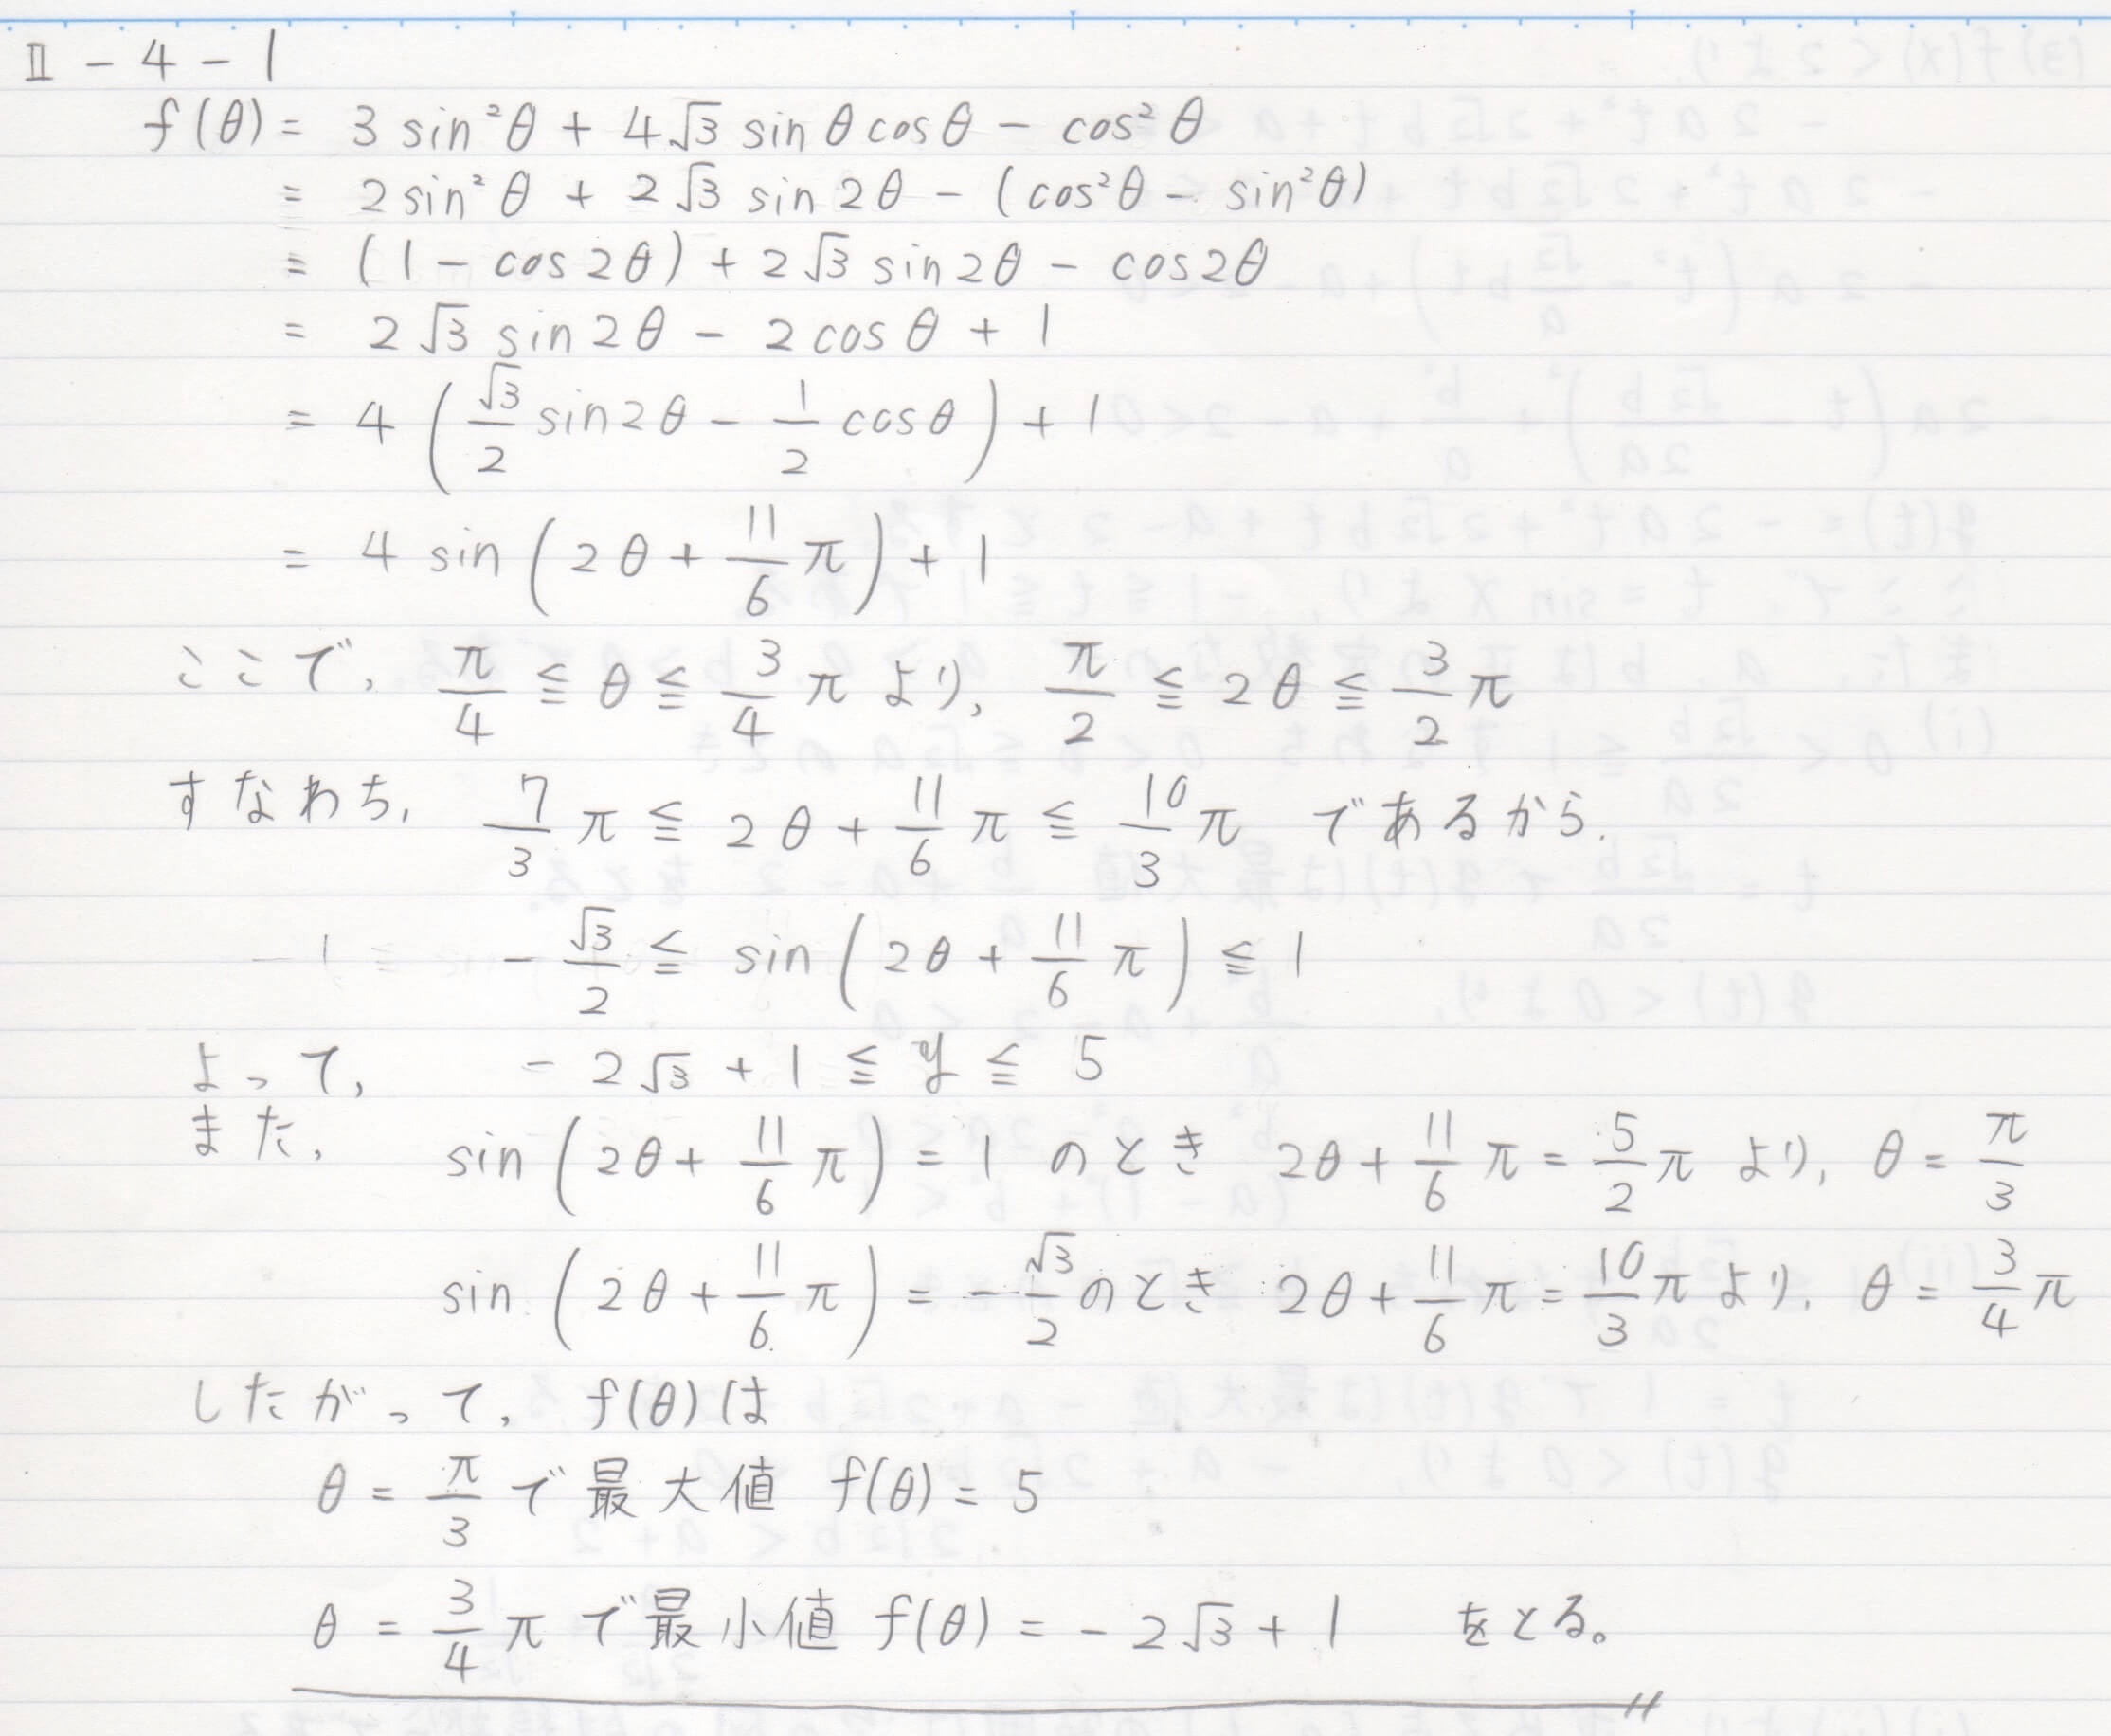 II - 4 - 1
f(θ) = 3 sin²θ + 4√3 sin θ cos θ - cos²θ
= 2 sin²θ + 2√3 sin 2θ - (cos²θ - sin²θ)
= (1 - cos 2θ) + 2√3 sin 2θ - cos 2θ
= 2√3 sin 2θ - 2 cos θ + 1
= 4 (√3/2 sin 2θ - 1/2 cos θ) + 1
= 4 sin (2θ + 11/6 π) + 1
ここで, π/4 ≦ θ ≦ 3/4 π より, π/2 ≦ 2θ ≦ 3/2 π
すなわち, 7/3 π ≦ 2θ + 11/6 π ≦ 10/3 π であるから.
- √3/2 ≦ sin (2θ + 11/6 π) ≦ 1
よって, - 2√3 + 1 ≦ y ≦ 5
また, sin (2θ + 11/6 π) = 1 のとき 2θ + 11/6 π = 5/2 π より, θ = π/3
sin (2θ + 11/6 π) = - √3/2 のとき 2θ + 11/6 π = 10/3 π より, θ = 3/4 π
したがって, f(θ) は
θ = π/3 で 最大値 f(θ) = 5
θ = 3/4 π で 最小値 f(θ) = - 2√3 + 1 をとる。